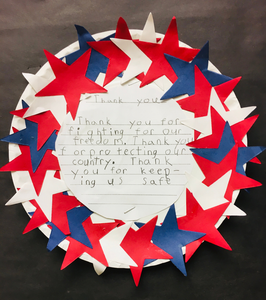 Thank you
Thank you for
fighting for our
freedom. Thank you
for protecting our
country. Thank
you for keep-
ing us safe